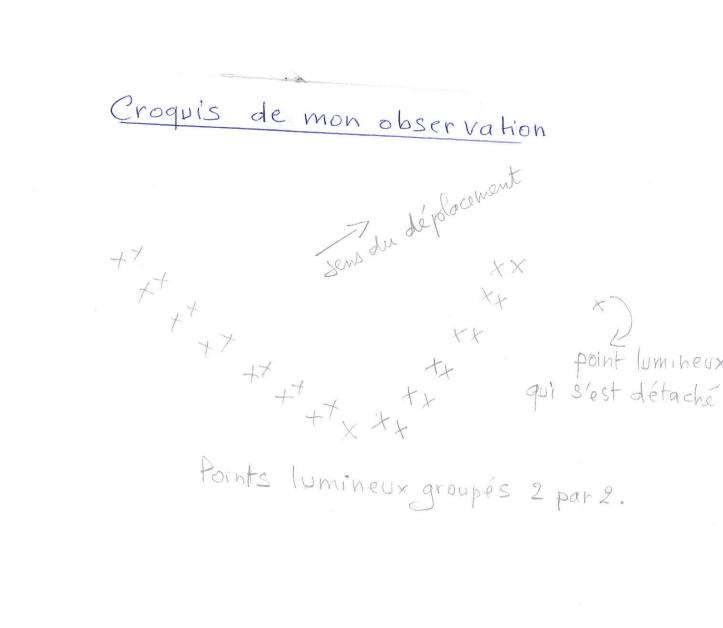 Croquis de mon observation
sens du déplacement
point lumineux
qui s'est détaché
Points lumineux groupés 2 par 2.